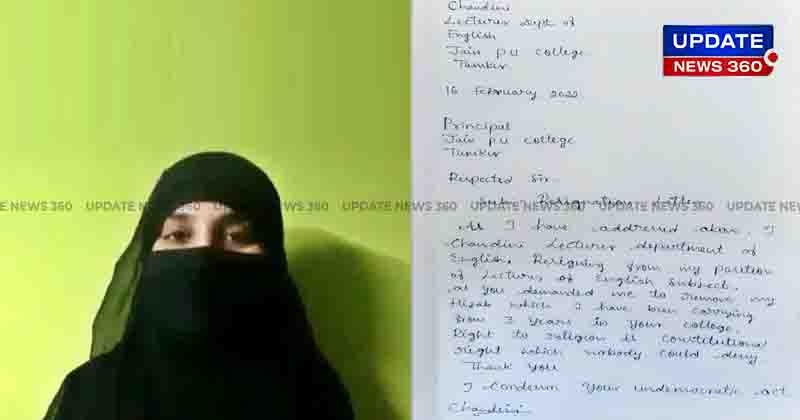 Chandini
Lecturer Dept of
English
Jain PU college
Tumkur
16 February 2022
Principal
Jain PU college
Tumkur
Respected Sir
Sub: Resignation letter
As I have addressed above, I
Chandini Lecturer department of
English, Resigning from my position
of Lecturer of English subject.
as you demanded me to remove my
Hizab which I have been carrying
from 3 years in your college.
Right to religion is constitutional
right which nobody could deny
Thank you
I Condemn Your undemocratic act
Chandini
UPDATE
NEWS 360
UPDATE NEWS 360 UPDATE NEWS 360 UPDATE NEWS 360 UPDATE NEWS 360 UPDATE NEWS 360 UPDATE NEWS 360